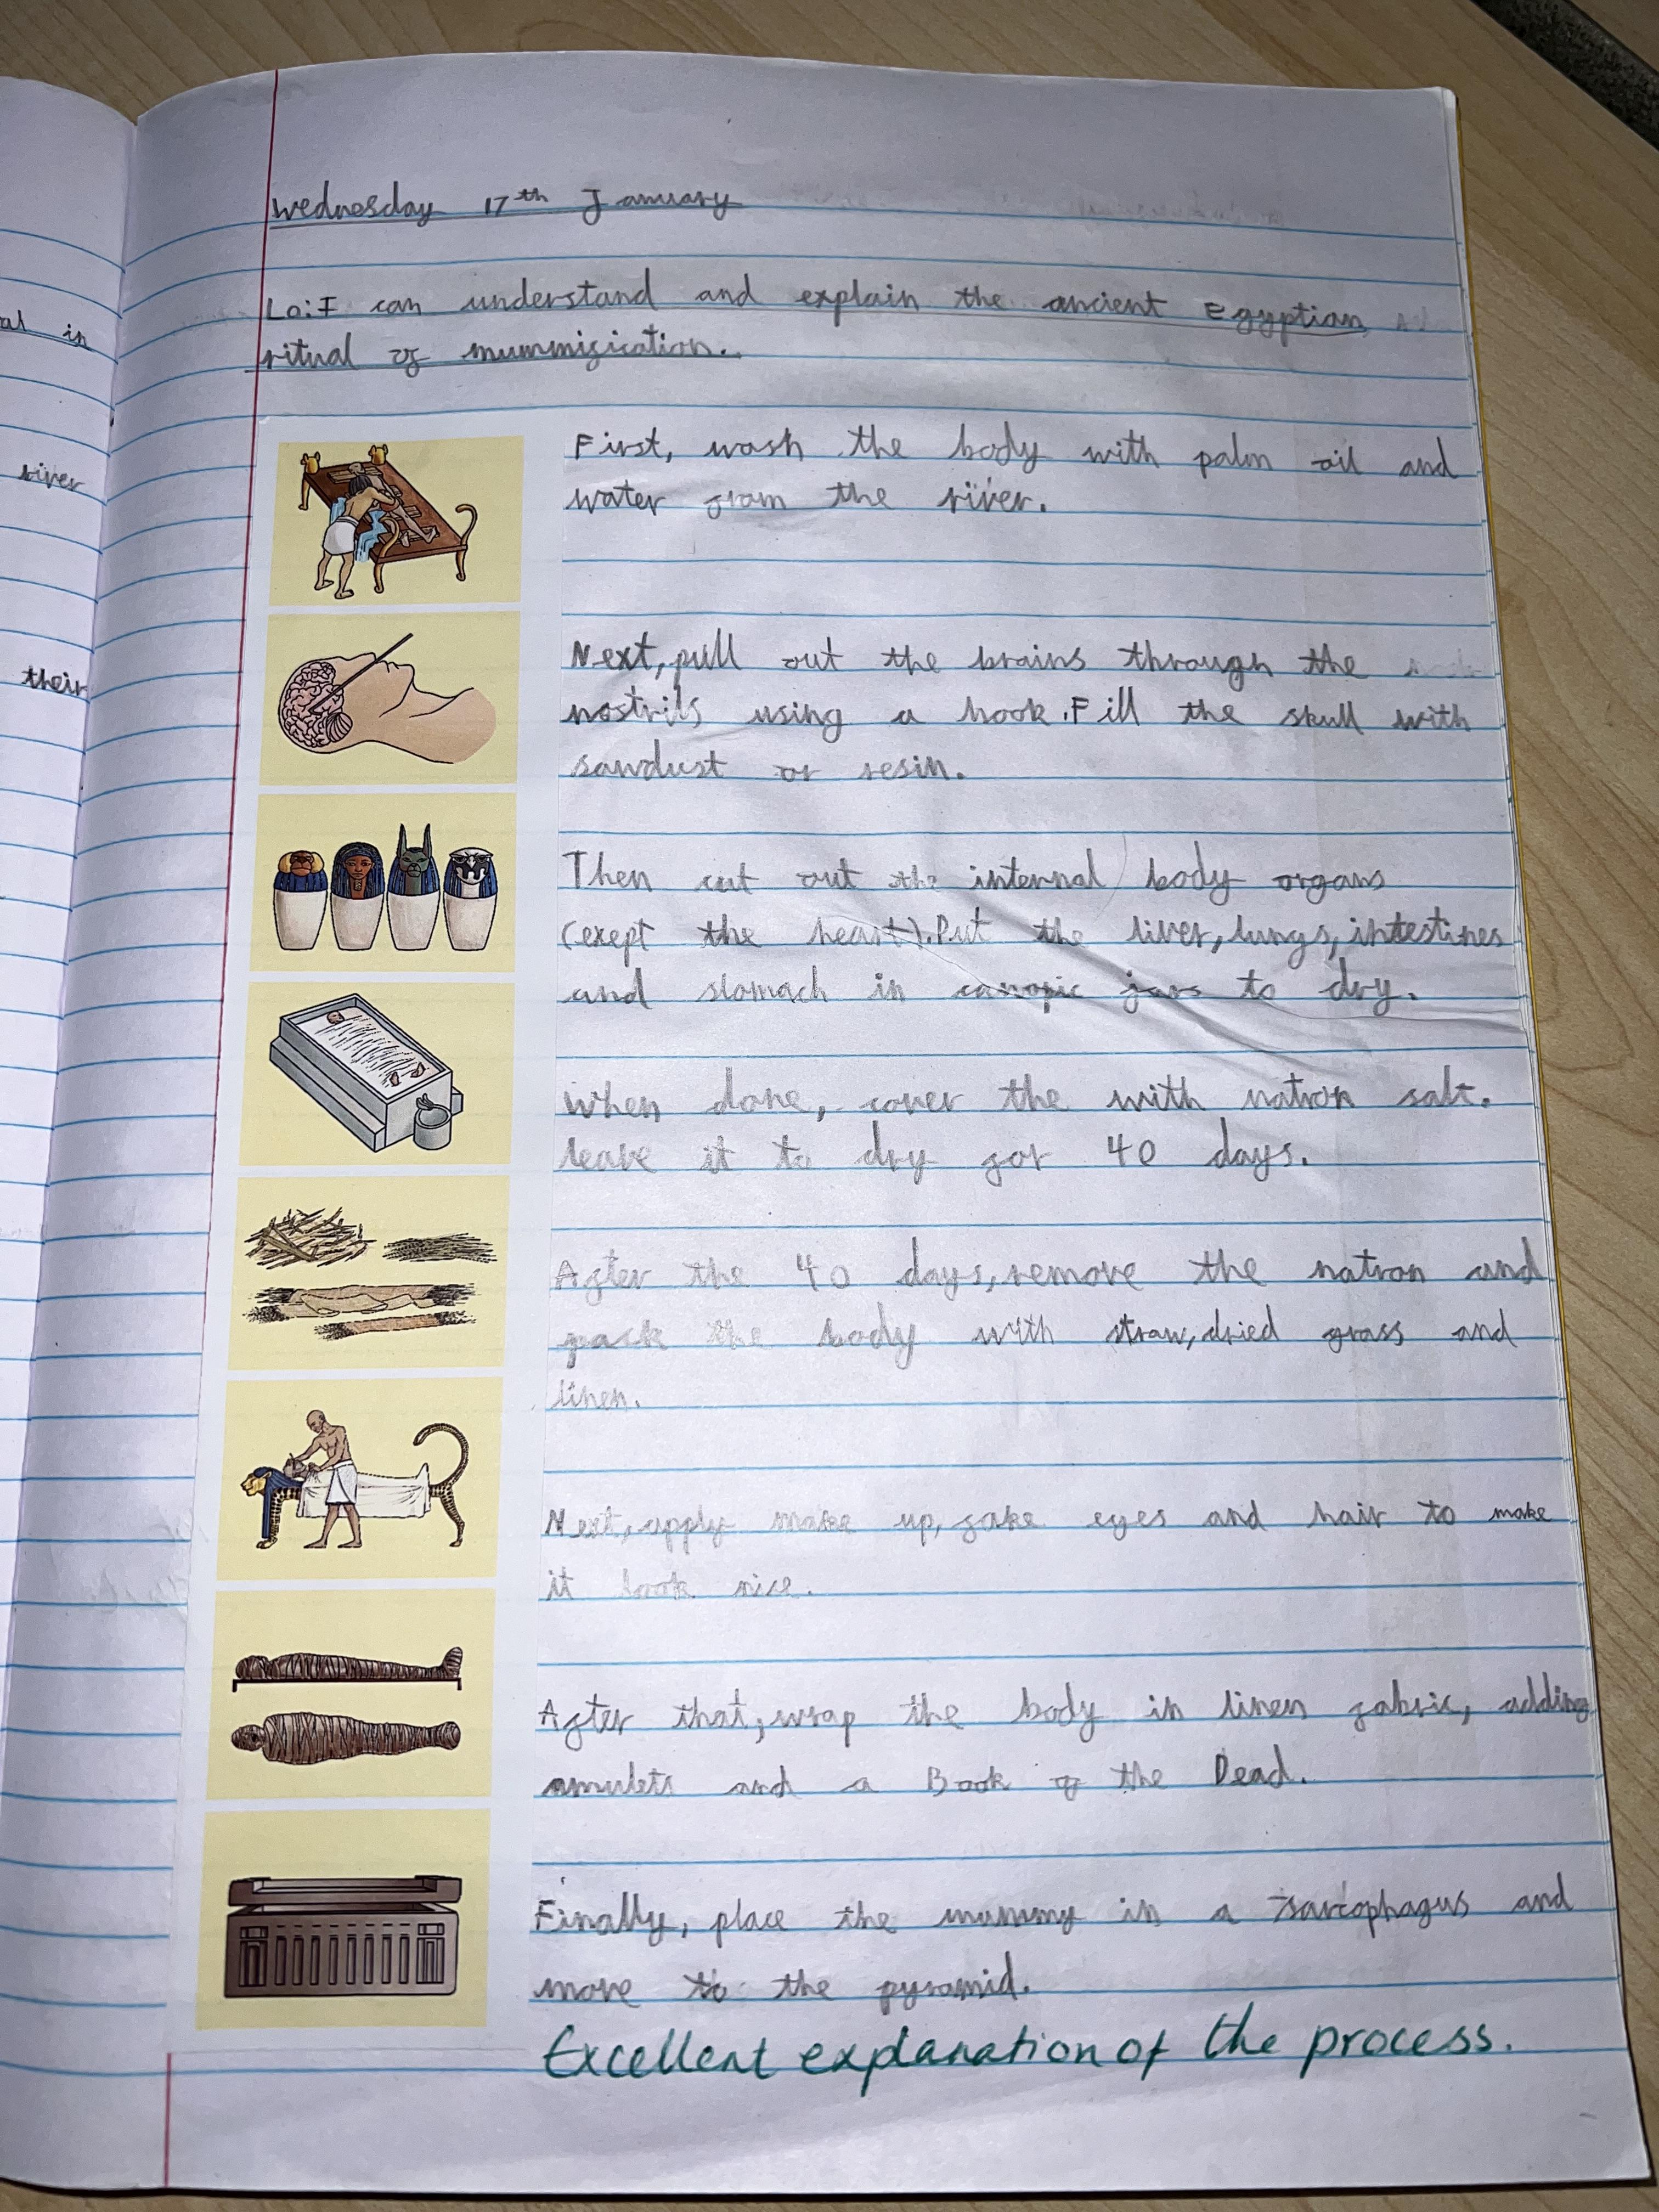 al in
river
their
Wednesday 17th January
Lo: I can understand and explain the ancient Egyptian
ritual of mummification.
First, wash the body with palm oil and
water from the river.
Next, pull out the brains through the
nostrils using a hook. Fill the skull with
sawdust or resin.
Then cut out the internal body organs
(exept the heart). Put the liver, lungs, intestines
and stomach in canopic jars to dry.
When done, cover the with natron salt.
leave it to dry for 40 days.
After the 40 days, remove the natron and
pack the body with straw, dried grass and
linen.
Next, apply make up, fake eyes and hair to make
it look nice.
After that, wrap the body in linen fabric, adding
amulets and a Book of the Dead.
Finally, place the mummy in a sarcophagus and
move to the pyramid.
Excellent explanation of the process.